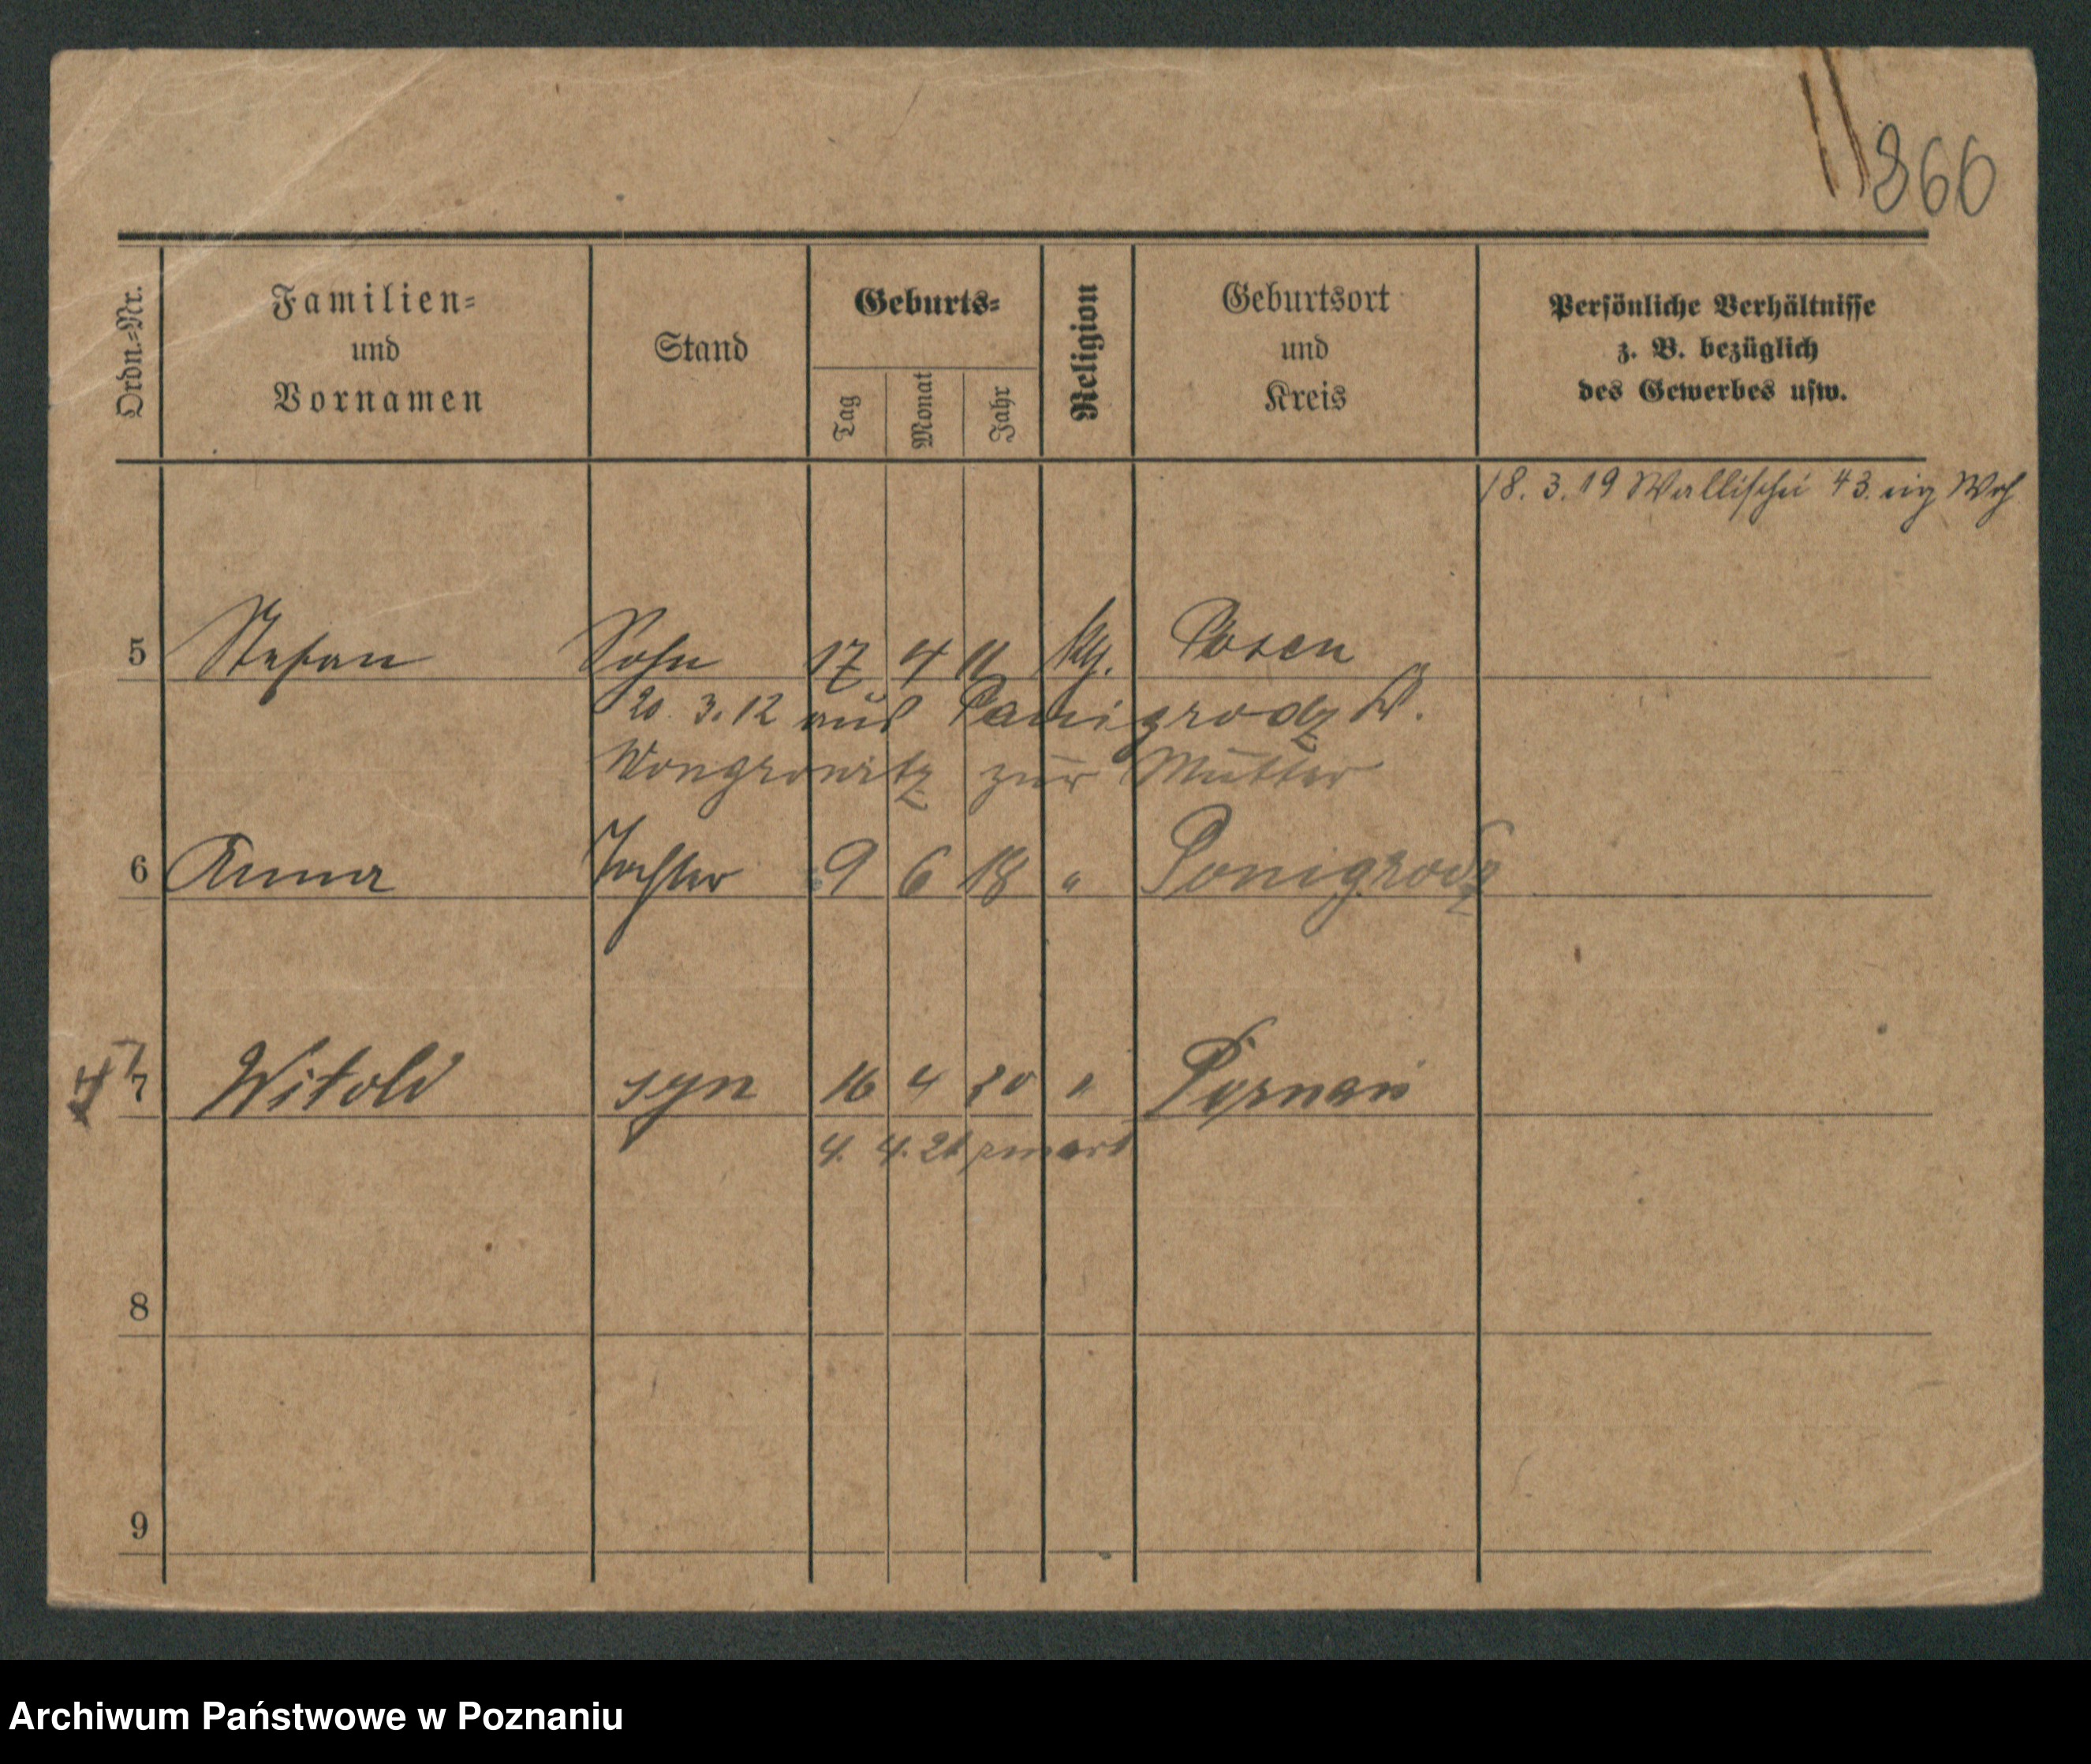 866
Ordn.-Nr.
Familien-
und
Vornamen
Stand
Geburts-
Tag
Monat
Jahr
Religion
Geburtsort
und
Kreis
Persönliche Verhältnisse
z. B. bezüglich
des Gewerbes usw.
18. 3. 19 Wallischei 43.
5 Stefan Sohn 17 4 11 Posen
20. 3. 12 aus Panigrodz
Wongrowitz zur Mutter
6 Anna Tochter 9 6 18 " Panigrodz
7 Witold syn 16 4 20 " Poznań
4. 4. 21 zmarł
8
9
Archiwum Państwowe w Poznaniu